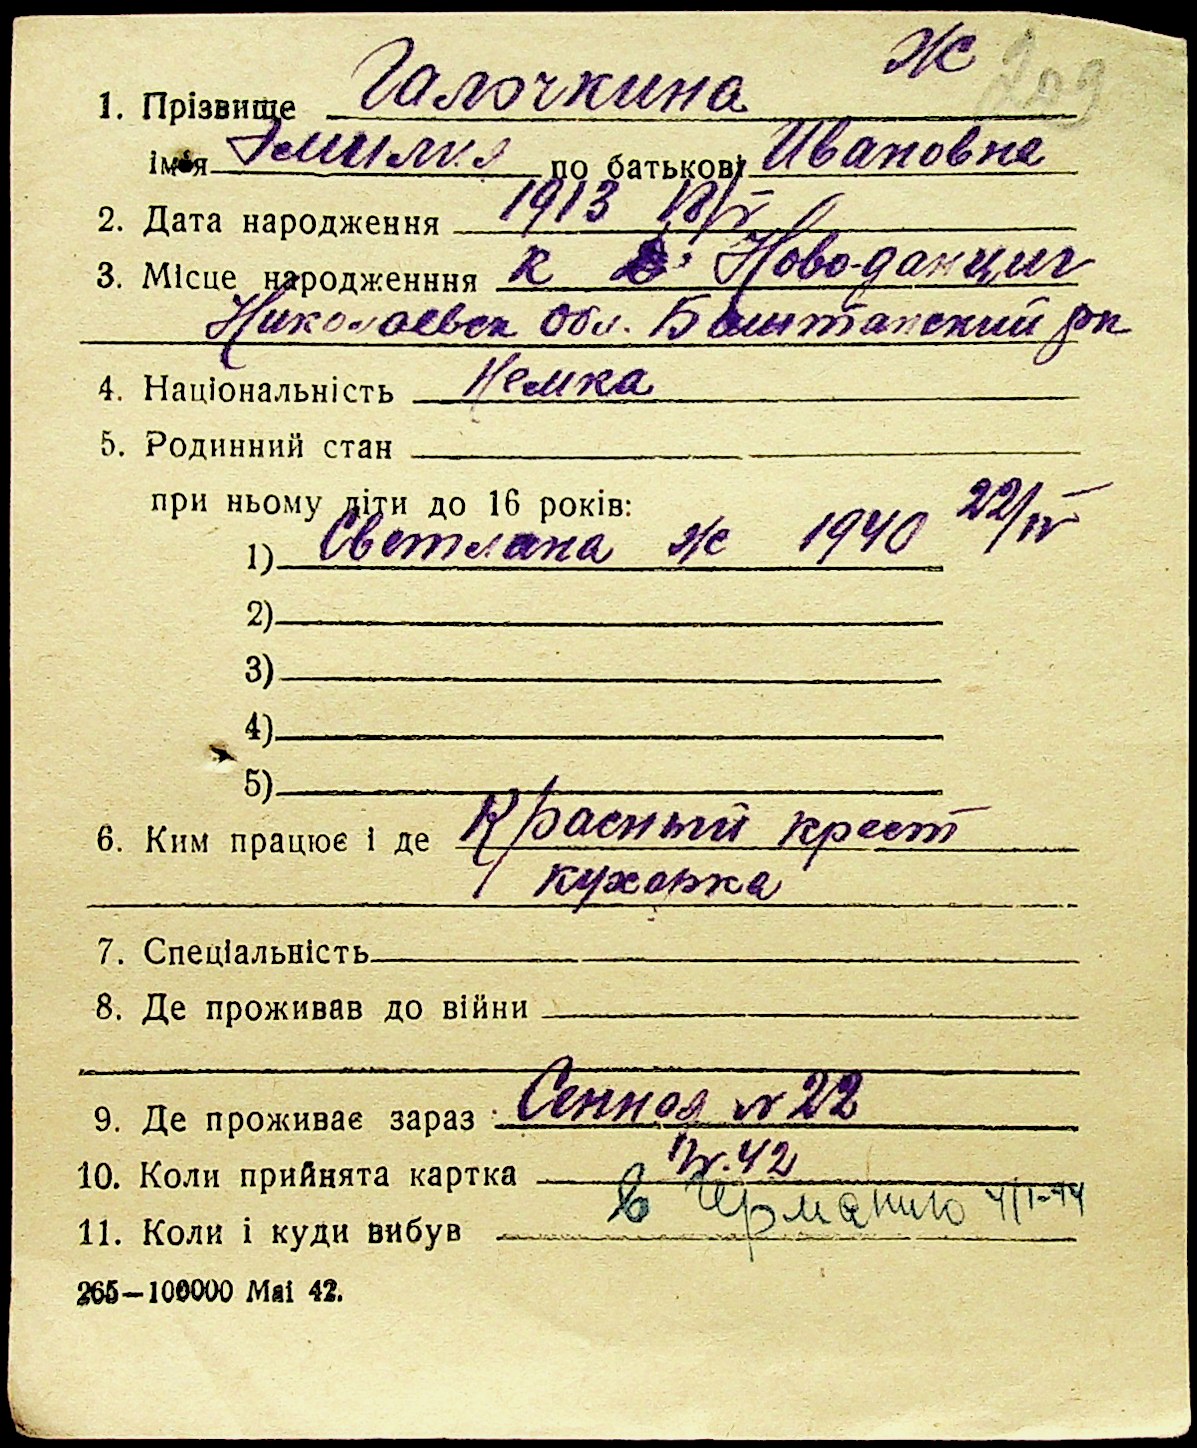 Ж 209
1. Прізвище Галочкина
Ім'я Эмилия по батькові Ивановна
2. Дата народження 1913 18/IV
3. Місце народженння к Ново-данциг
Николаевск обл. Баштанский рн
4. Національність Немка
5. Родинний стан
при ньому діти до 16 років:
1) Светлана ж 1940 22/IV
2)
3)
4)
5)
6. Ким працює і де Красный крест
кухарка
7. Спеціальність
8. Де проживав до війни
9. Де проживає зараз Сенная N 22
10. Коли прийнята картка IV.42
11. Коли і куди вибув в Германию 4/I-44
265—100000 Маі 42.